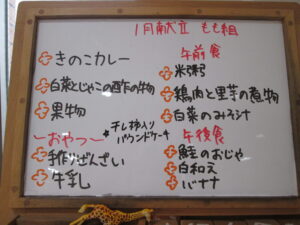 1月献立 もも組
きのこカレー
白菜とじゃこの酢の物
果物
〜おやつ〜
*干し柿入りパウンドケーキ
手作りぜんざい
牛乳
午前食
米粥
鶏肉と里芋の煮物
白菜のみそ汁
午後食
鮭のおじや
白和え
バナナ